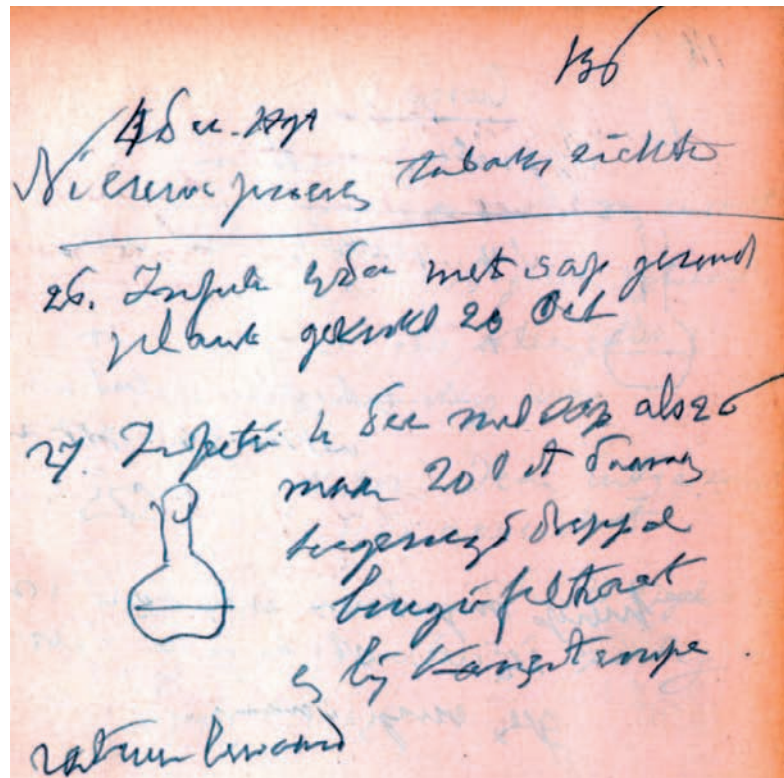 136
4 Dec. 1897
Nieuwe proeven tabaksziekte
26. Infectie 4 Dec met sap gezond
plant gekookt 20 Oct
27. Infectie 4 Dec met sap als 26
maar 20 Oct daarna
toegevoegd droppel
bougiefiltraat
en bij Kamertempe
ratuur bewaard